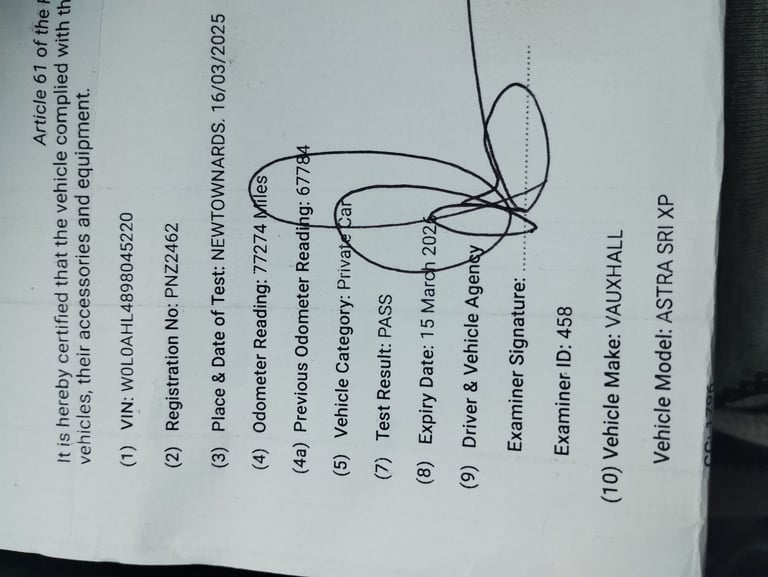 Article 61 of the
It is hereby certified that the vehicle complied with
vehicles, their accessories and equipment.
(1) VIN: W0L0AHL4898045220
(2) Registration No: PNZ2462
(3) Place & Date of Test: NEWTOWNARDS. 16/03/2025
(4) Odometer Reading: 77274 Miles
(4a) Previous Odometer Reading: 67784
(5) Vehicle Category: Private Car
(7) Test Result: PASS
(8) Expiry Date: 15 March
(9) Driver & Vehicle Agency
Examiner Signature:
Examiner ID: 458
(10) Vehicle Make: VAUXHALL
Vehicle Model: ASTRA SRI XP